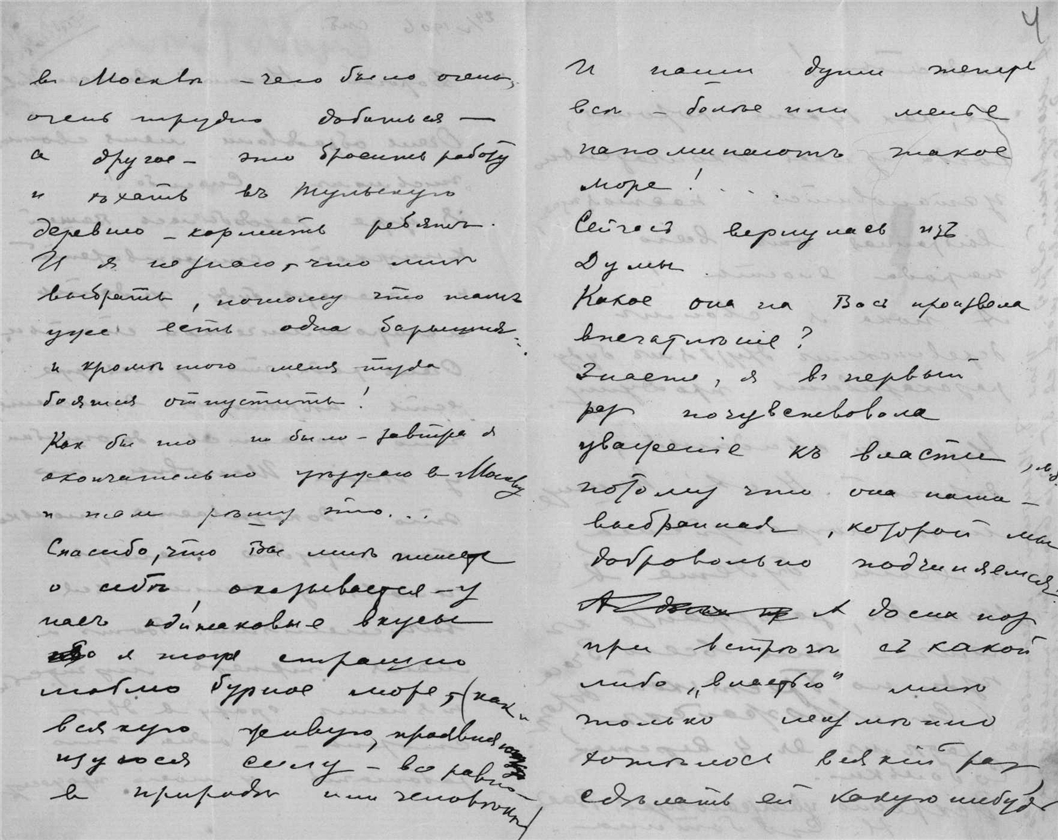 въ Москвѣ – чего было очень,
очень трудно добиться –
а другое – это бросить работу
и ѣхать въ Тульскую
деревню – кормить ребятъ.
И я не знаю, что мнѣ
выбрать, потому что тамъ
уже есть одна барышня
и кромѣ того меня туда
боятся отпустить!
Какъ бы то не было – завтра я
окончательно уѣзжаю в Москву
и тамъ рѣшу это...
Спасибо, что Вы мнѣ пишете
о себѣ, оказывается – у
насъ одинаковые вкусы
я тоже страшно
люблю бурное море, (как и
всякую живую,
щуюся силу – все равно
въ природѣ или человѣкѣ)
4
И наши души теперь
всѣ – более или менѣе
напоминаютъ такое
море!....
Сейчасъ вернулась изъ
Думы.
Какое она на Васъ произвела
впечатлѣніе?
Знаете, я въ первый
раз почувствовала
уваженіе къ власти,
потому что она наша –
выбранная, которой мы
добровольно подчиняемся.
А до сих пор
при встрѣчѣ съ какой
либо „властью" мнѣ
только неумѣнно
хотѣлось всякій раз
сдѣлать ей какую нибудь